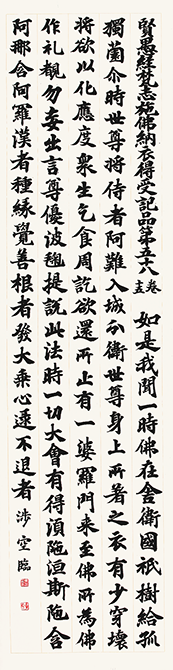 賢愚經梵志施佛納衣得受記品第五十八 卷十三 如是我聞一時佛在舍衛國祇樹給孤
獨薗尒時世尊將侍者阿難入城分衛世尊身上所著之衣有少穿壞
將欲以化應度衆生乞食周訖欲還所止有一婆羅門来至佛所為佛
作礼觀勿妄出言尊優波毱提說此法時一切大會有得湏陁洹斯陁含
阿那含阿羅漢者種緣覺善根者發大乘心速不退者 涉空臨